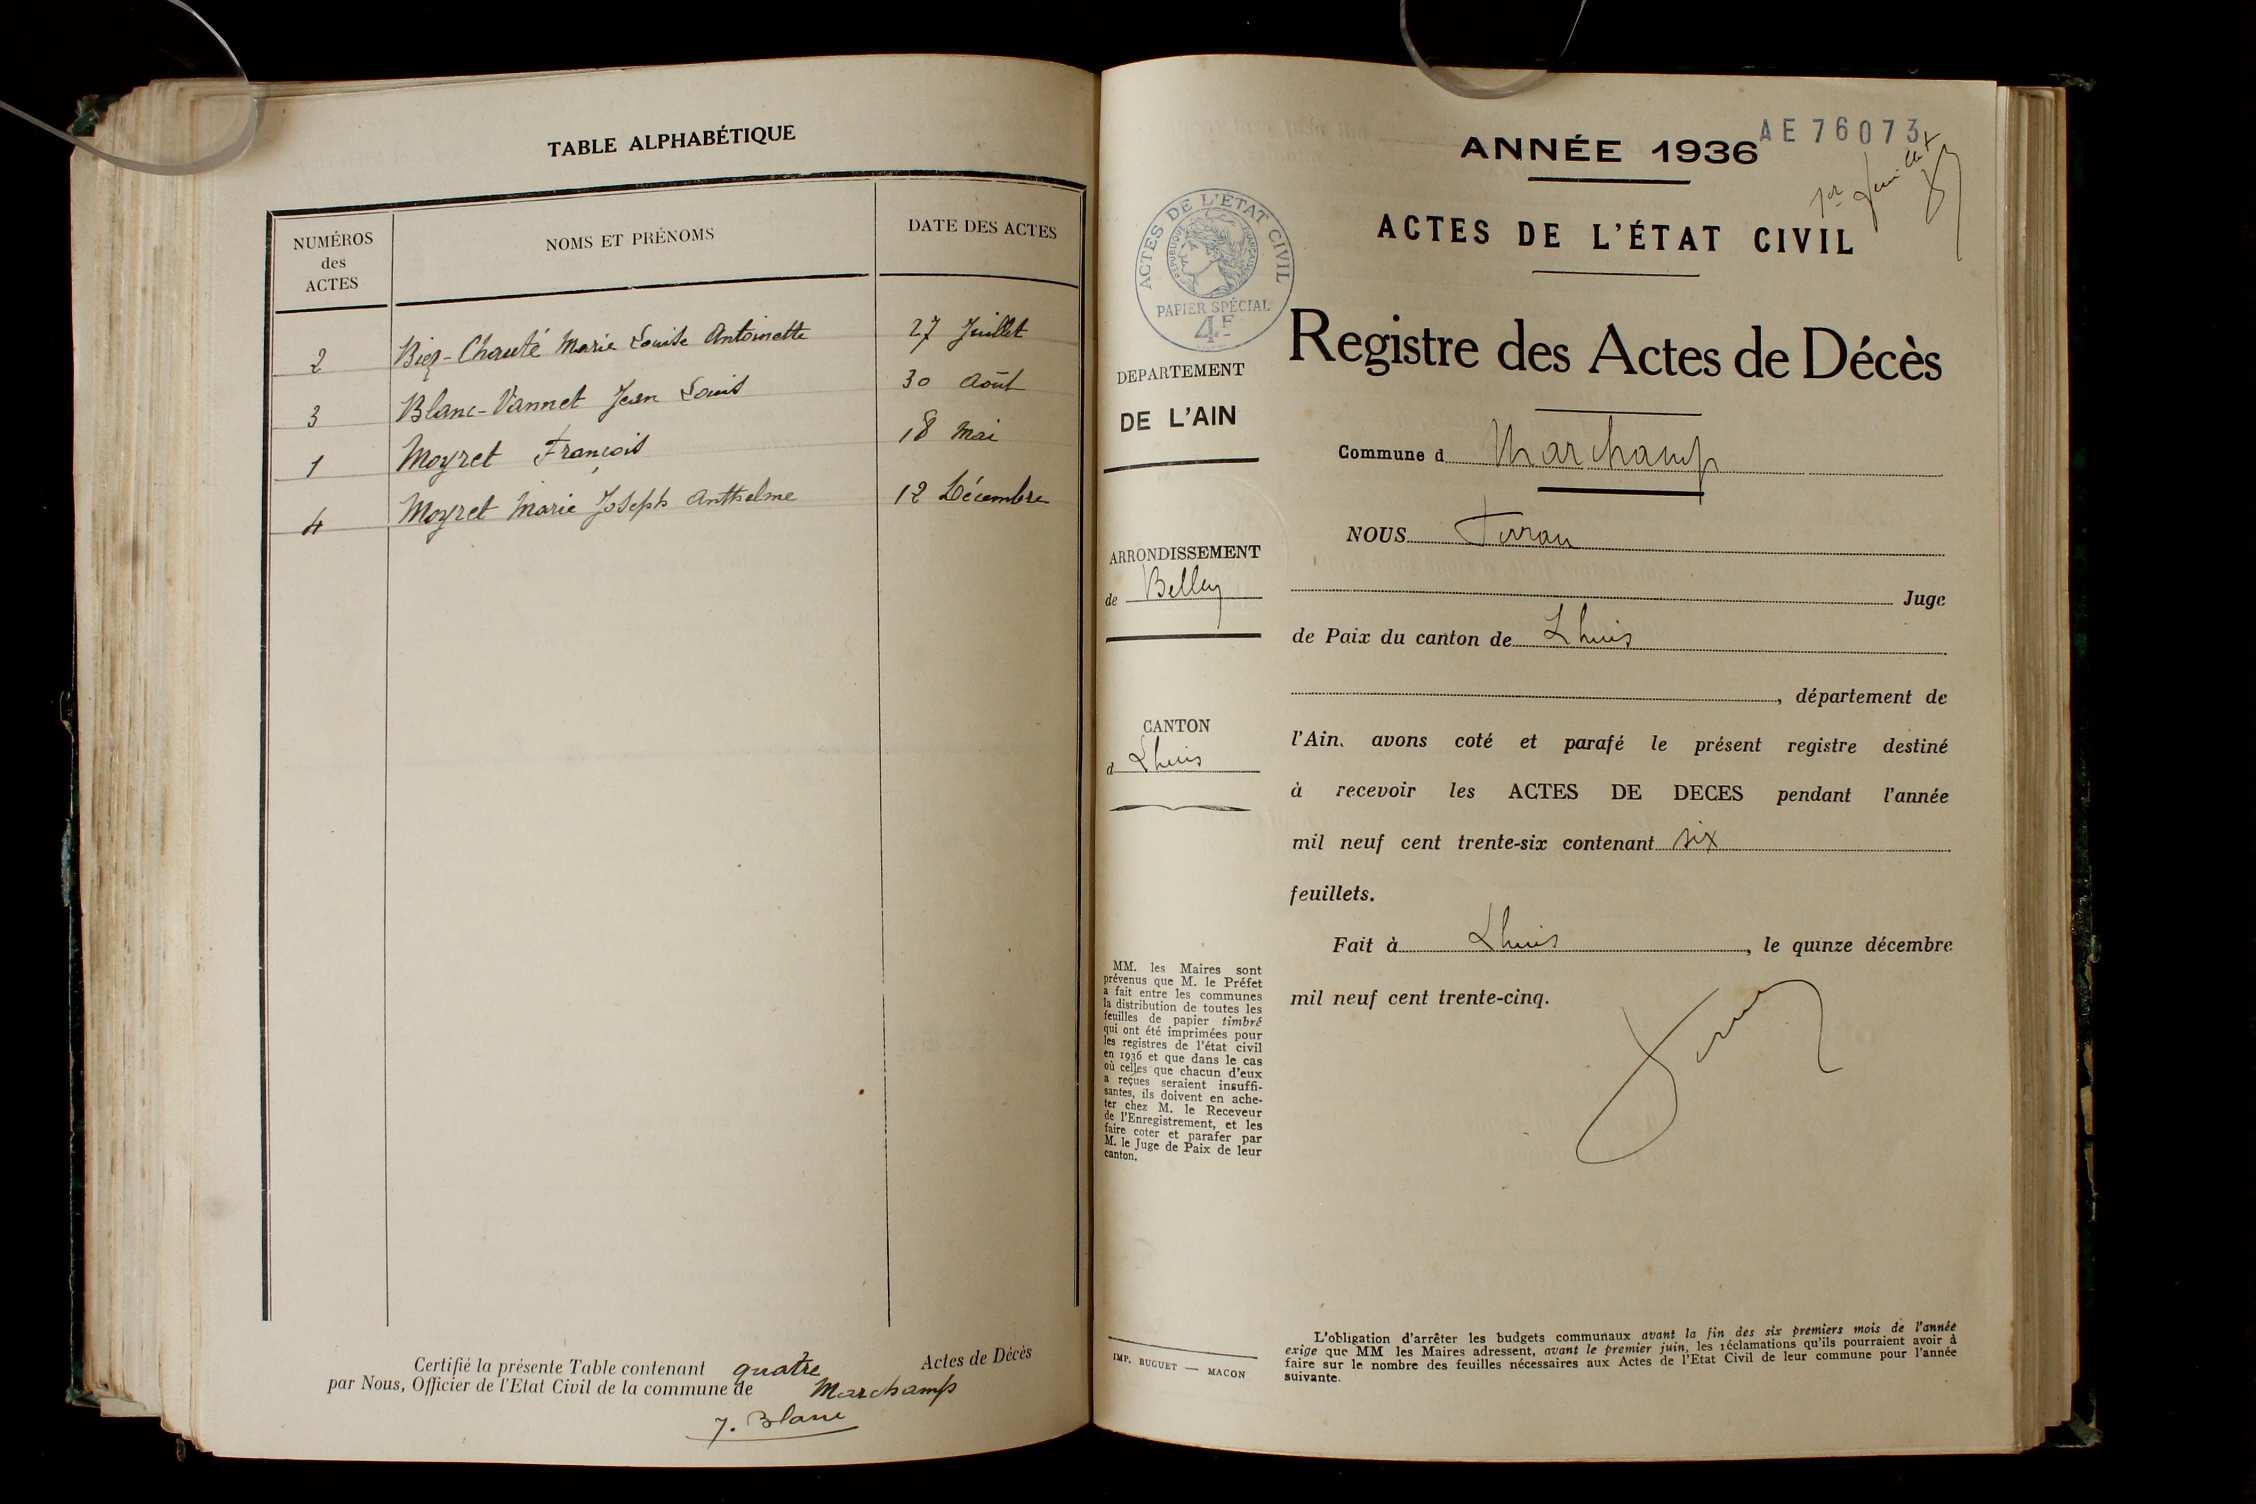 TABLE ALPHABÉTIQUE
NUMÉROS des ACTES
NOMS ET PRÉNOMS
DATE DES ACTES
2 Marie Louise Antoinette 27 Juillet
3 Blanc-Vannet Jean Louis 30 Août
1 Moyret François 18 Mai
4 Moyret Marie Joseph Anthelme 12 Décembre
Certifié la présente Table contenant quatre Actes de Décès
par Nous, Officier de l'Etat Civil de la commune de Marchamp
J. Blanc
AE 76073
1er feuillet
ANNÉE 1936
ACTES DE L'ÉTAT CIVIL
Registre des Actes de Décès
ACTES DE L'ÉTAT CIVIL
RÉPUBLIQUE FRANÇAISE
PAPIER SPÉCIAL
4F
DEPARTEMENT
DE L'AIN
ARRONDISSEMENT
de Belley
CANTON
d Lhuis
MM. les Maires sont
prévenus que M. le Préfet
a fait entre les communes
la distribution de toutes les
feuilles de papier timbré
qui ont été imprimées pour
les registres de l'état civil
en 1936 et que dans le cas
où celles que chacun d'eux
a reçues seraient insuffi-
santes, ils doivent en ache-
ter chez M. le Receveur
de l'Enregistrement, et les
faire coter et parafer par
M. le Juge de Paix de leur
canton.
IMP. BUGUET — MACON
Commune d Marchamp
NOUS
Juge
de Paix du canton de Lhuis
, département de
l'Ain, avons coté et parafé le présent registre destiné
à recevoir les ACTES DE DECES pendant l'année
mil neuf cent trente-six contenant six
feuillets.
Fait à Lhuis, le quinze décembre
mil neuf cent trente-cinq.
L'obligation d'arrêter les budgets communaux avant la fin des six premiers mois de l'année
exige que MM les Maires adressent, avant le premier juin, les réclamations qu'ils pourraient avoir à
faire sur le nombre des feuilles nécessaires aux Actes de l'Etat Civil de leur commune pour l'année
suivante.